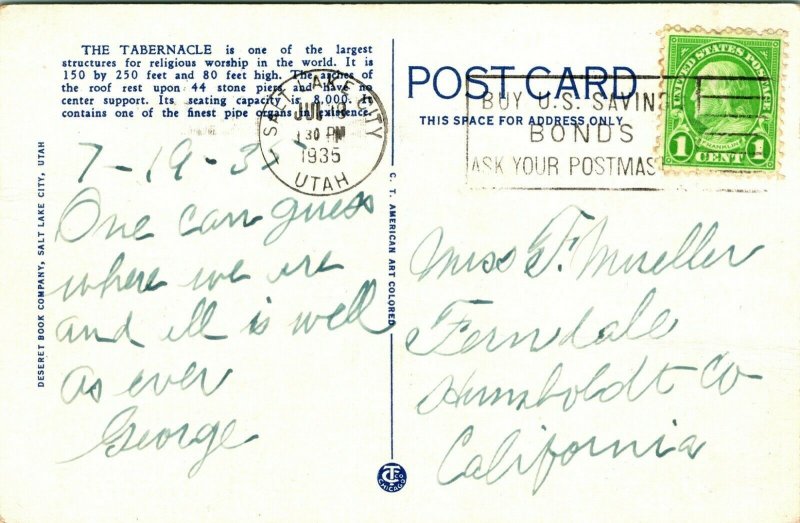 THE TABERNACLE is one of the largest
structures for religious worship in the world. It is
150 by 250 feet and 80 feet high. The arches of
the roof rest upon 44 stone piers and have no
center support. Its seating capacity is 8,000. It
contains one of the finest pipe organs in existence.
POST CARD
THIS SPACE FOR ADDRESS ONLY
SALT LAKE CITY
JUL
30 PM
1935
UTAH
BUY U.S. SAVIN
BONDS
ASK YOUR POSTMAS
UNITED STATES POSTAGE
FRANKLIN
1 CENT 1
7-19-35
One can guess
where we are
and all is well
as ever
George
Miss F. Mueller
Ferndale
Humboldt Co
California
DESERET BOOK COMPANY, SALT LAKE CITY, UTAH
C. T. AMERICAN ART COLORED
CT CO
CHICAGO